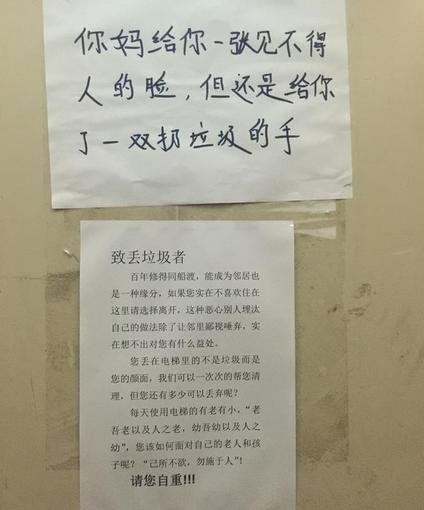 你妈给你一张见不得
人的脸，但还是给你
了一双扔垃圾的手
致丢垃圾者
百年修得同船渡，能成为邻居也
是一种缘分，如果您实在不喜欢住在
这里请选择离开，这种恶心别人埋汰
自己的做法除了让邻里鄙视唾弃，实
在想不出对您有什么益处。
您丢在电梯里的不是垃圾而是
您的颜面，我们可以一次次的帮您清
理，但您还有多少可以丢弃呢？
每天使用电梯的有老有小，“老
吾老以及人之老，幼吾幼以及人之
幼”，您该如何面对自己的老人和孩
子呢？“己所不欲，勿施于人”！
请您自重!!!